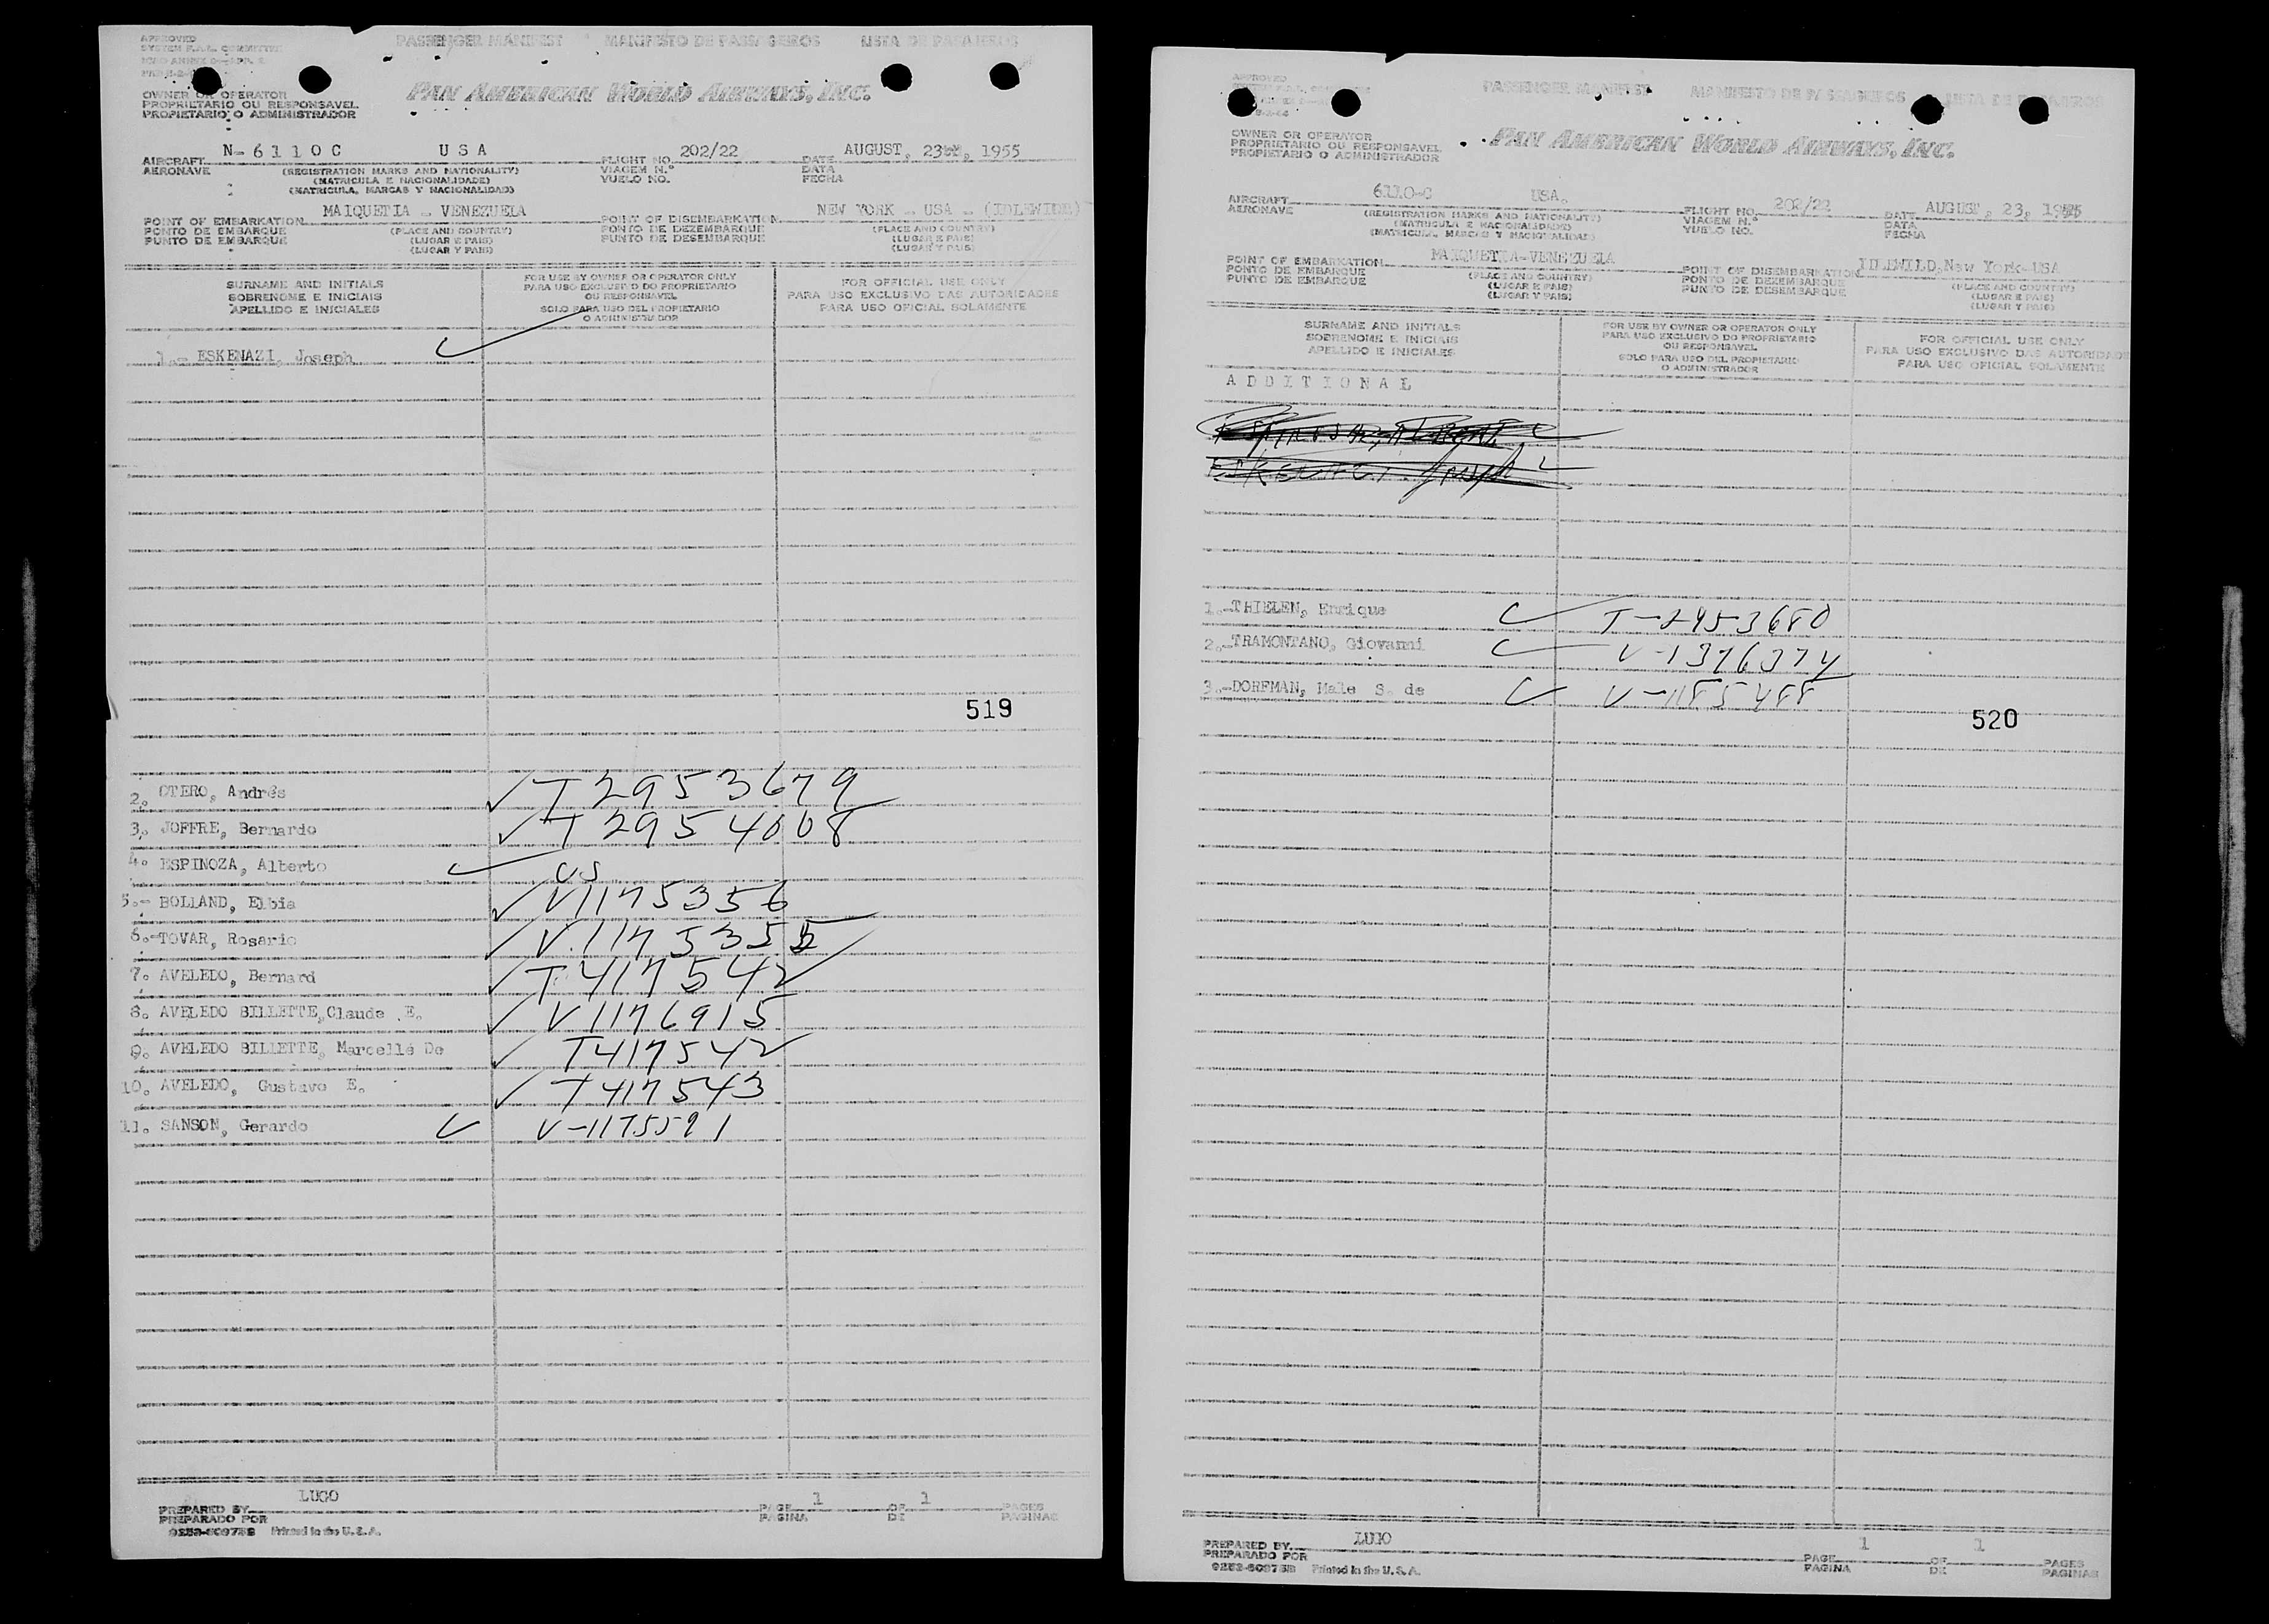 APPROVED
SYSTEM F.A.L. COMMITTEE
PASSENGER MANIFEST MANIFESTO DE PASSAGEIROS LISTA DE PASAJEROS
PAN AMERICAN WORLD AIRWAYS, INC.
OWNER OR OPERATOR
PROPRIETARIO OU RESPONSAVEL
PROPIETARIO O ADMINISTRADOR
AIRCRAFT N-6110C USA FLIGHT NO. 202/22 DATE AUGUST, 23, 1955
AERONAVE (REGISTRATION MARKS AND NATIONALITY) VIAGEM N.º DATA
(MATRICULA E NACIONALIDADE) VUELO NO. FECHA
(MATRICULA, MARCAS Y NACIONALIDAD)
POINT OF EMBARKATION MAIQUETIA - VENEZUELA POINT OF DISEMBARKATION NEW YORK - USA - (IDLEWILD)
PONTO DE EMBARQUE (PLACE AND COUNTRY) PONTO DE DEZEMBARQUE (PLACE AND COUNTRY)
PUNTO DE EMBARQUE (LUGAR E PAIS) PUNTO DE DESEMBARQUE (LUGAR E PAIS)
(LUGAR Y PAIS) (LUGAR Y PAIS)
SURNAME AND INITIALS
SOBRENOME E INICIAIS
APELLIDO E INICIALES
FOR USE BY OWNER OR OPERATOR ONLY
PARA USO EXCLUSIVO DO PROPRIETARIO
OU RESPONSAVEL
SOLO PARA USO DEL PROPIETARIO
O ADMINISTRADOR
FOR OFFICIAL USE ONLY
PARA USO EXCLUSIVO DAS AUTORIDADES
PARA USO OFICIAL SOLAMENTE
1.- ESKENAZI, Joseph
519
2. OTERO, Andrés T2953679
3. JOFFRE, Bernardo T2954008
4. ESPINOZA, Alberto US
5.- BOLLAND, Elbia V1175356
6.- TOVAR, Rosario V.1175355
7. AVELEDO, Bernard T417542
8. AVELEDO BILLETTE, Claude E. V1176915
9. AVELEDO BILLETTE, Marcellé De T417542
10. AVELEDO, Gustavo E. T417543
11. SANSON, Gerardo V-1175591
PREPARED BY LUGO PAGE 1 OF 1 PAGES
PREPARADO POR PAGINA DE PAGINAS
Printed in the U.S.A.
APPROVED
PASSENGER MANIFEST MANIFESTO DE PASSAGEIROS LISTA DE PASAJEROS
OWNER OR OPERATOR
PROPRIETARIO OU RESPONSAVEL
PROPIETARIO O ADMINISTRADOR
PAN AMERICAN WORLD AIRWAYS, INC.
AIRCRAFT 6110-C USA. FLIGHT NO. 202/22 DATE AUGUST, 23, 1955
AERONAVE (REGISTRATION MARKS AND NATIONALITY) VIAGEM N.º DATA
(MATRICULA E NACIONALIDADE) VUELO NO. FECHA
(MATRICULA, MARCAS Y NACIONALIDAD)
POINT OF EMBARKATION MAIQUETIA-VENEZUELA POINT OF DISEMBARKATION IDLEWILD, New York-USA
PONTO DE EMBARQUE (PLACE AND COUNTRY) PONTO DE DEZEMBARQUE (PLACE AND COUNTRY)
PUNTO DE EMBARQUE (LUGAR E PAIS) PUNTO DE DESEMBARQUE (LUGAR E PAIS)
(LUGAR Y PAIS) (LUGAR Y PAIS)
SURNAME AND INITIALS
SOBRENOME E INICIAIS
APELLIDO E INICIALES
FOR USE BY OWNER OR OPERATOR ONLY
PARA USO EXCLUSIVO DO PROPRIETARIO
OU RESPONSAVEL
SOLO PARA USO DEL PROPIETARIO
O ADMINISTRADOR
FOR OFFICIAL USE ONLY
PARA USO EXCLUSIVO DAS AUTORIDADE
PARA USO OFICIAL SOLAMENTE
ADDITIONAL
1.-THIELEN, Enrique T-2953680
2.-TRAMONTANO, Giovanni V-1376374
3.-DORFMAN, Male S. de V-1185488
520
PREPARED BY LUGO PAGE 1 OF 1 PAGES
PREPARADO POR PAGINA DE PAGINAS
Printed in the U.S.A.